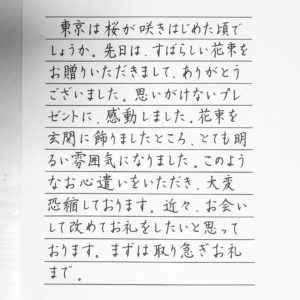 東京は桜が咲きはじめた頃で
しょうか。先日は、すばらしい花束を
お贈りいただきまして、ありがとう
ございました。思いがけないプレ
ゼントに、感動しました。花束を
玄関に飾りましたところ、とても明
るい雰囲気になりました。このよう
なお心遣いをいただき、大変
恐縮しております。近々、お会い
して改めてお礼をしたいと思って
おります。まずは取り急ぎお礼
まで。